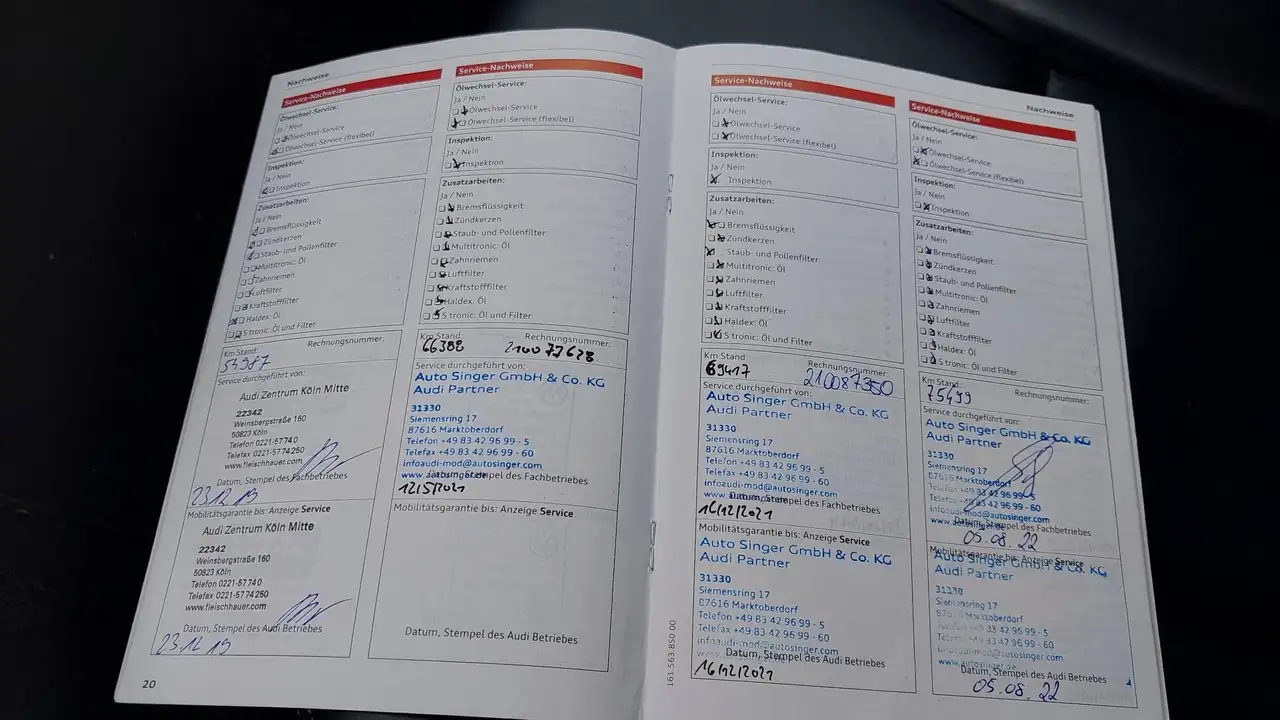 Nachweise
Service-Nachweise
Ölwechsel-Service:
Ja / Nein
Ölwechsel-Service
Ölwechsel-Service (flexibel)
Inspektion:
Ja / Nein
Inspektion
Zusatzarbeiten:
Ja / Nein
Bremsflüssigkeit
Zündkerzen
Staub- und Pollenfilter
Multitronic: Öl
Zahnriemen
Luftfilter
Kraftstofffilter
Haldex: Öl
S tronic: Öl und Filter
Km Stand: Rechnungsnummer:
53987
Service durchgeführt von:
Audi Zentrum Köln Mitte
22342
Weinsbergstraße 160
50823 Köln
Telefon 0221-5774 0
Telefax 0221-5774 250
www.fleischhauer.com
Datum, Stempel des Fachbetriebes
23.12.19
Mobilitätsgarantie bis: Anzeige Service
Audi Zentrum Köln Mitte
22342
Weinsbergstraße 160
50823 Köln
Telefon 0221-5774 0
Telefax 0221-5774 250
www.fleischhauer.com
Datum, Stempel des Audi Betriebes
23.12.19
20
Service-Nachweise
Ölwechsel-Service:
Ja / Nein
Ölwechsel-Service
Ölwechsel-Service (flexibel)
Inspektion:
Ja / Nein
Inspektion
Zusatzarbeiten:
Ja / Nein
Bremsflüssigkeit
Zündkerzen
Staub- und Pollenfilter
Multitronic: Öl
Zahnriemen
Luftfilter
Kraftstofffilter
Haldex: Öl
S tronic: Öl und Filter
Km Stand: Rechnungsnummer:
66388 210077628
Service durchgeführt von:
Auto Singer GmbH & Co. KG
Audi Partner
31330
Siemensring 17
87616 Marktoberdorf
Telefon +49 83 42 96 99 - 5
Telefax +49 83 42 96 99 - 60
infoaudi-mod@autosinger.com
www.autosinger.de
Datum, Stempel des Fachbetriebes
12/5/2021
Mobilitätsgarantie bis: Anzeige Service
Datum, Stempel des Audi Betriebes
Service-Nachweise
Ölwechsel-Service:
Ja / Nein
Ölwechsel-Service
Ölwechsel-Service (flexibel)
Inspektion:
Ja / Nein
Inspektion
Zusatzarbeiten:
Ja / Nein
Bremsflüssigkeit
Zündkerzen
Staub- und Pollenfilter
Multitronic: Öl
Zahnriemen
Luftfilter
Kraftstofffilter
Haldex: Öl
S tronic: Öl und Filter
Km Stand: Rechnungsnummer:
69417 210087350
Service durchgeführt von:
Auto Singer GmbH & Co. KG
Audi Partner
31330
Siemensring 17
87616 Marktoberdorf
Telefon +49 83 42 96 99 - 5
Telefax +49 83 42 96 99 - 60
infoaudi-mod@autosinger.com
www.autosinger.de
Datum, Stempel des Fachbetriebes
16/12/2021
Mobilitätsgarantie bis: Anzeige Service
Auto Singer GmbH & Co. KG
Audi Partner
31330
Siemensring 17
87616 Marktoberdorf
Telefon +49 83 42 96 99 - 5
Telefax +49 83 42 96 99 - 60
infoaudi-mod@autosinger.com
Datum, Stempel des Audi Betriebes
16/12/2021
161.563.8S0.00
Nachweise
Service-Nachweise
Ölwechsel-Service:
Ja / Nein
Ölwechsel-Service
Ölwechsel-Service (flexibel)
Inspektion:
Ja / Nein
Inspektion
Zusatzarbeiten:
Ja / Nein
Bremsflüssigkeit
Zündkerzen
Staub- und Pollenfilter
Multitronic: Öl
Zahnriemen
Luftfilter
Kraftstofffilter
Haldex: Öl
S tronic: Öl und Filter
Km Stand: Rechnungsnummer:
75499
Service durchgeführt von:
Auto Singer GmbH & Co. KG
Audi Partner
31330
Siemensring 17
87616 Marktoberdorf
Telefon +49 83 42 96 99 - 5
Telefax +49 83 42 96 99 - 60
infoaudi-mod@autosinger.com
www.autosinger.de
Datum, Stempel des Fachbetriebes
05.08.22
Mobilitätsgarantie bis: Anzeige Service
Auto Singer GmbH & Co. KG
Audi Partner
31330
Siemensring 17
87616 Marktoberdorf
Telefon +49 83 42 96 99 - 5
Telefax +49 83 42 96 99 - 60
infoaudi-mod@autosinger.com
www.autosinger.de
Datum, Stempel des Audi Betriebes
05.08.22